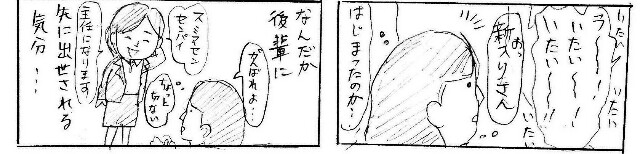 いたい
いたい
う〜〜!
いたい〜!
いたい〜!
いたい
おっ
新入りさん
はじまったのか…
なんだか
後輩に
先に出世される
気分…
がんばれよ…
スミマセン
センパイ
主任になります